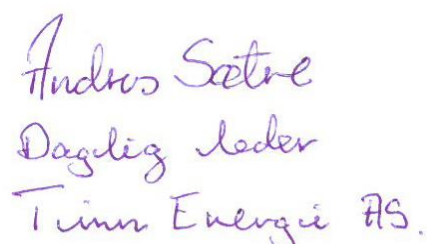 Andres Sætre
Daglig leder
Tinn Energi AS.